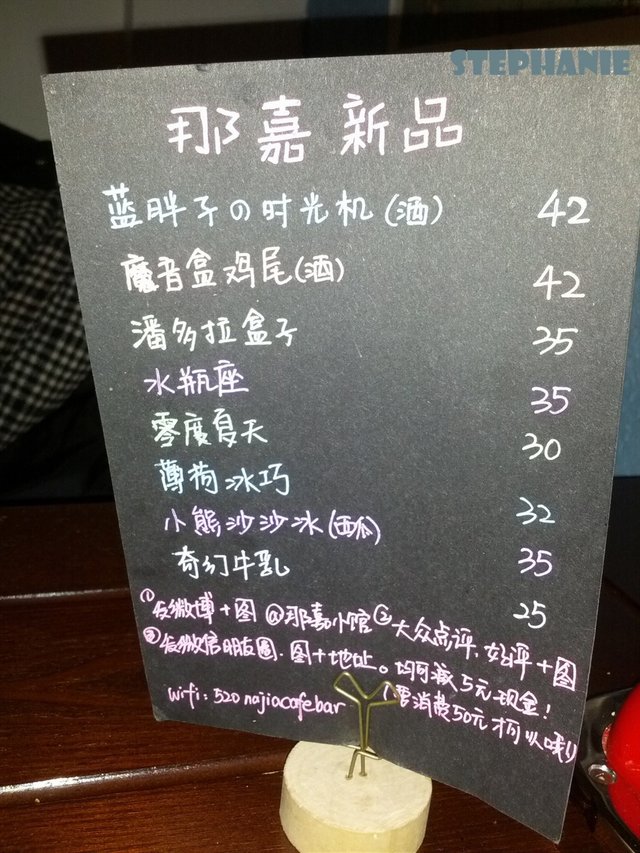 STEPHANIE
那嘉新品
蓝胖子の时光机(酒) 42
魔音盒鸡尾(酒) 42
潘多拉盒子 35
水瓶座 35
零度夏天 30
薄荷冰巧 32
小熊沙沙冰(西瓜) 35
奇幻牛乳 25
①发微博+图@那嘉小馆②大众点评,好评+图
③发微信朋友圈.图+地址。均可减5元现金!
(需消费50元才可以哦!)
wifi:520 najiacafebar